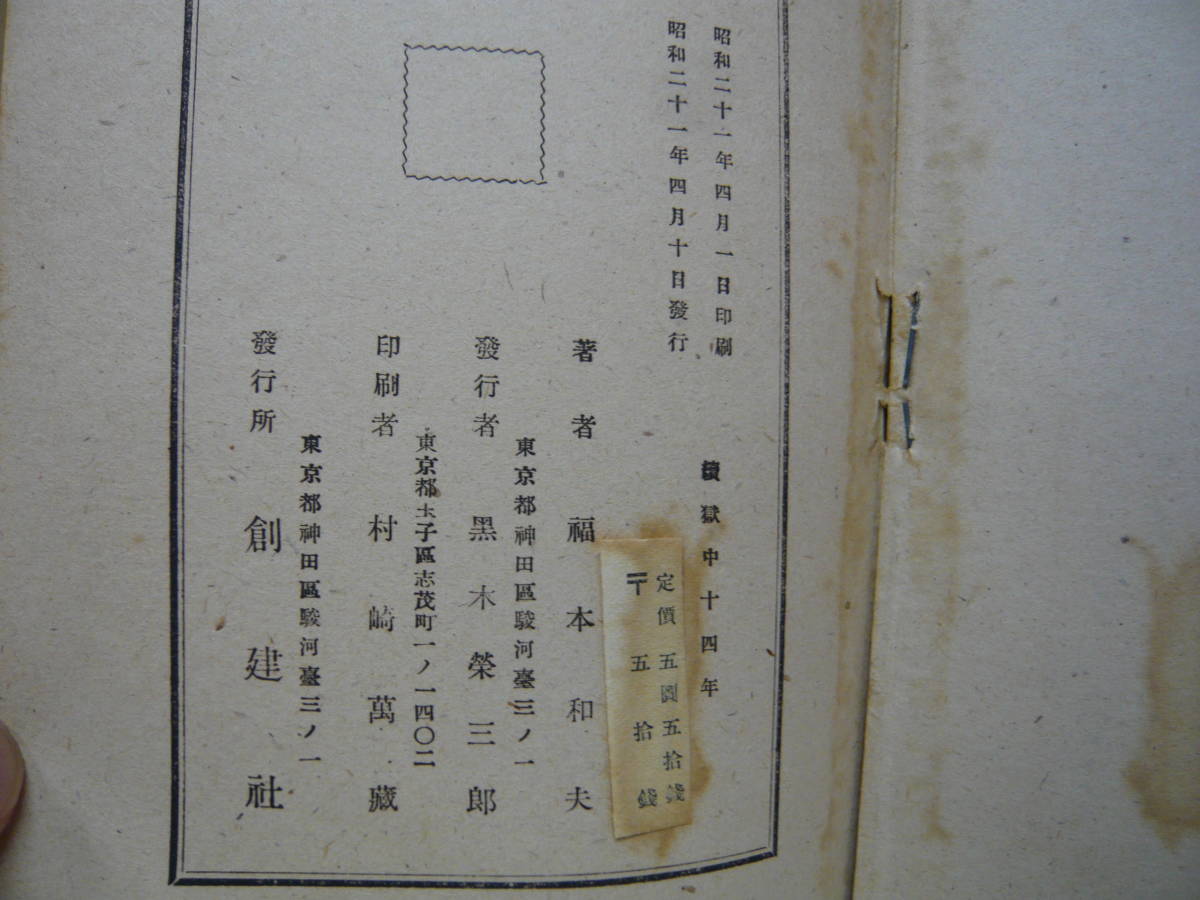 昭和二十一年四月一日印刷
昭和二十一年四月十日發行
續獄中十四年
定價五圓五拾錢
〒五拾錢
著者 福本和夫
東京都神田區駿河臺三ノ一
發行者 黑木榮三郎
東京都王子區志茂町一ノ一四〇二
印刷者 村崎萬藏
東京都神田區駿河臺三ノ一
發行所 創建社